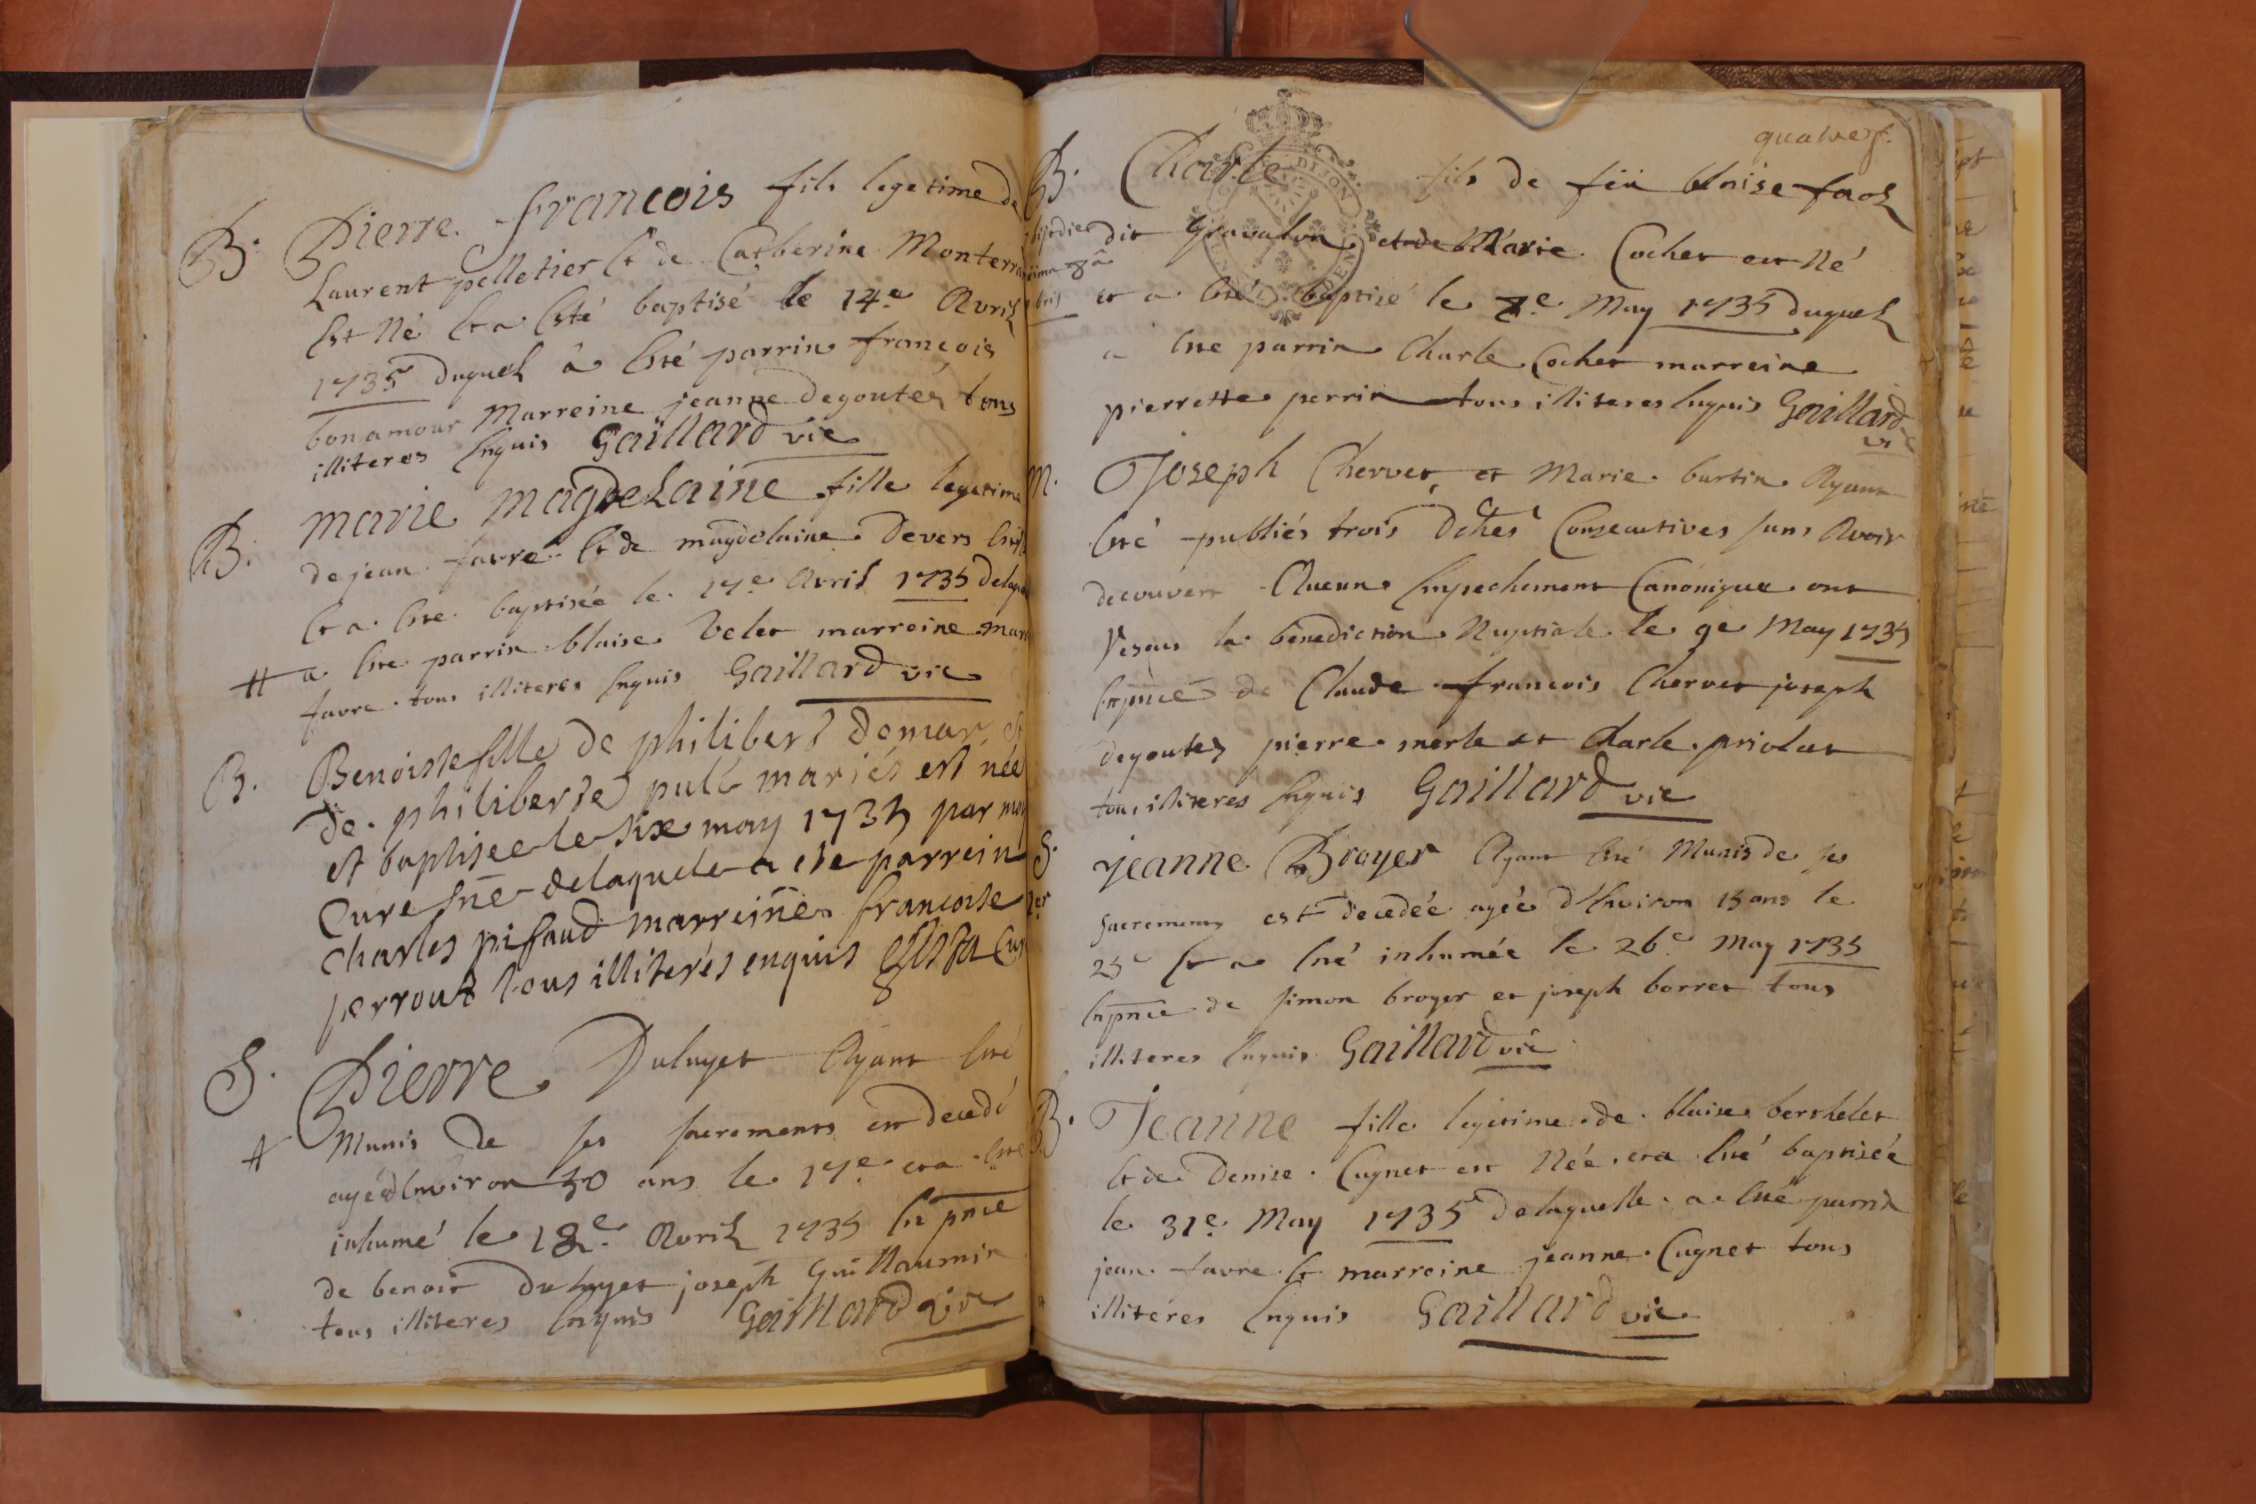 B. Pierre françois fils legetime de
Laurent pelletier Et de Catherine Monterra
Est Né Et a Esté baptisé le 14e Avril
1735 duquel à Esté parrin françois
bonamour Marreine jeanne degoutes tous
illiteres Enquis Gaillard vic
B. Marie Magdelaine fille legetime
de jean favre Et de magdelaine Devers
Et a Esté baptisée le 17e Avril 1735
# a Esté parrin blaise Velet marreine
favre tous illiteres Enquis Gaillard vic
B. Benoiste fille de philibert demar et
de philiberte pull mariés est née
et baptisee le six may 1735 par moy
Cure sne delaquele a ete parrein
Charles pifaud marreine francoise
perrout tous illiterés enquis
S. Pierre Duluyet Ayant Esté
# Munis de ses sacrements est decedé
agé d'Environ 30 ans le 17e et a Esté
inhumé le 18e Avril 1735 En pnce
de benoit Duluyet joseph Guillaumin
tous illiteres Enquis Gaillard vic
B. Charle fils de feu blaise
dit Gravalon et de Marie Cochet est Né
et a Esté baptisé le 7e May 1735 duquel
a Esté parrin Charle Cochet marreine
pierrette perrin tous illiteres Enquis Gaillard
vic
M. Joseph Chervet, et Marie burtin Ayant
Esté publiés trois Dches Consecutives sans Avoir
decouvert Aucun Empechement Canonique ont
resçus la benediction Nuptiale le 9e May 1735
En pnce de Claude francois Chervet joseph
degoutes pierre merle et Charle priolat
tous illiteres Enquis Gaillard vic
S. Jeanne Broyer Ayant Esté Munis de ses
sacrements est decedée agée d'Environ 15 ans le
25e Et a Esté inhumée le 26e May 1735
En pnce de simon broyer et joseph borret tous
illiteres Enquis Gaillard vic
B. Jeanne fille legetime de blaise berthelet
Et de Denise Cugnet est Née et a Esté baptisée
le 31e May 1735 delaquelle a Esté parrin
jean favre Et marreine jeanne Cugnet tous
illiteres Enquis Gaillard vic